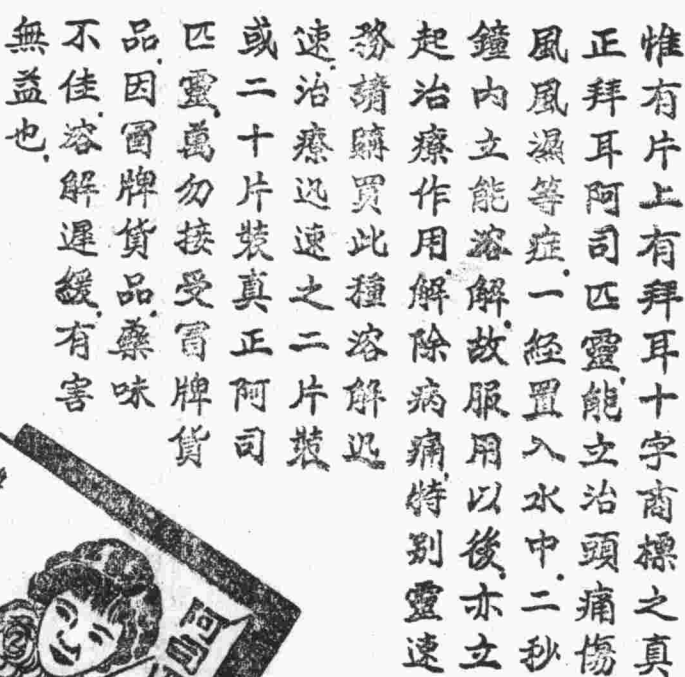 惟有片上有拜耳十字商標之真
正拜耳阿司匹靈，能立治頭痛傷
風風濕等症。一經置入水中，二秒
鐘內立能溶解，故服用以後，亦立
起治療作用，解除病痛，特别靈速
務請購買此種溶解迅
速，治療迅速之二片裝
或二十片裝真正阿司
匹靈，萬勿接受冒牌貨
品，因冒牌貨品，藥味
不佳，溶解遲緩，有害
無益也，
阿司